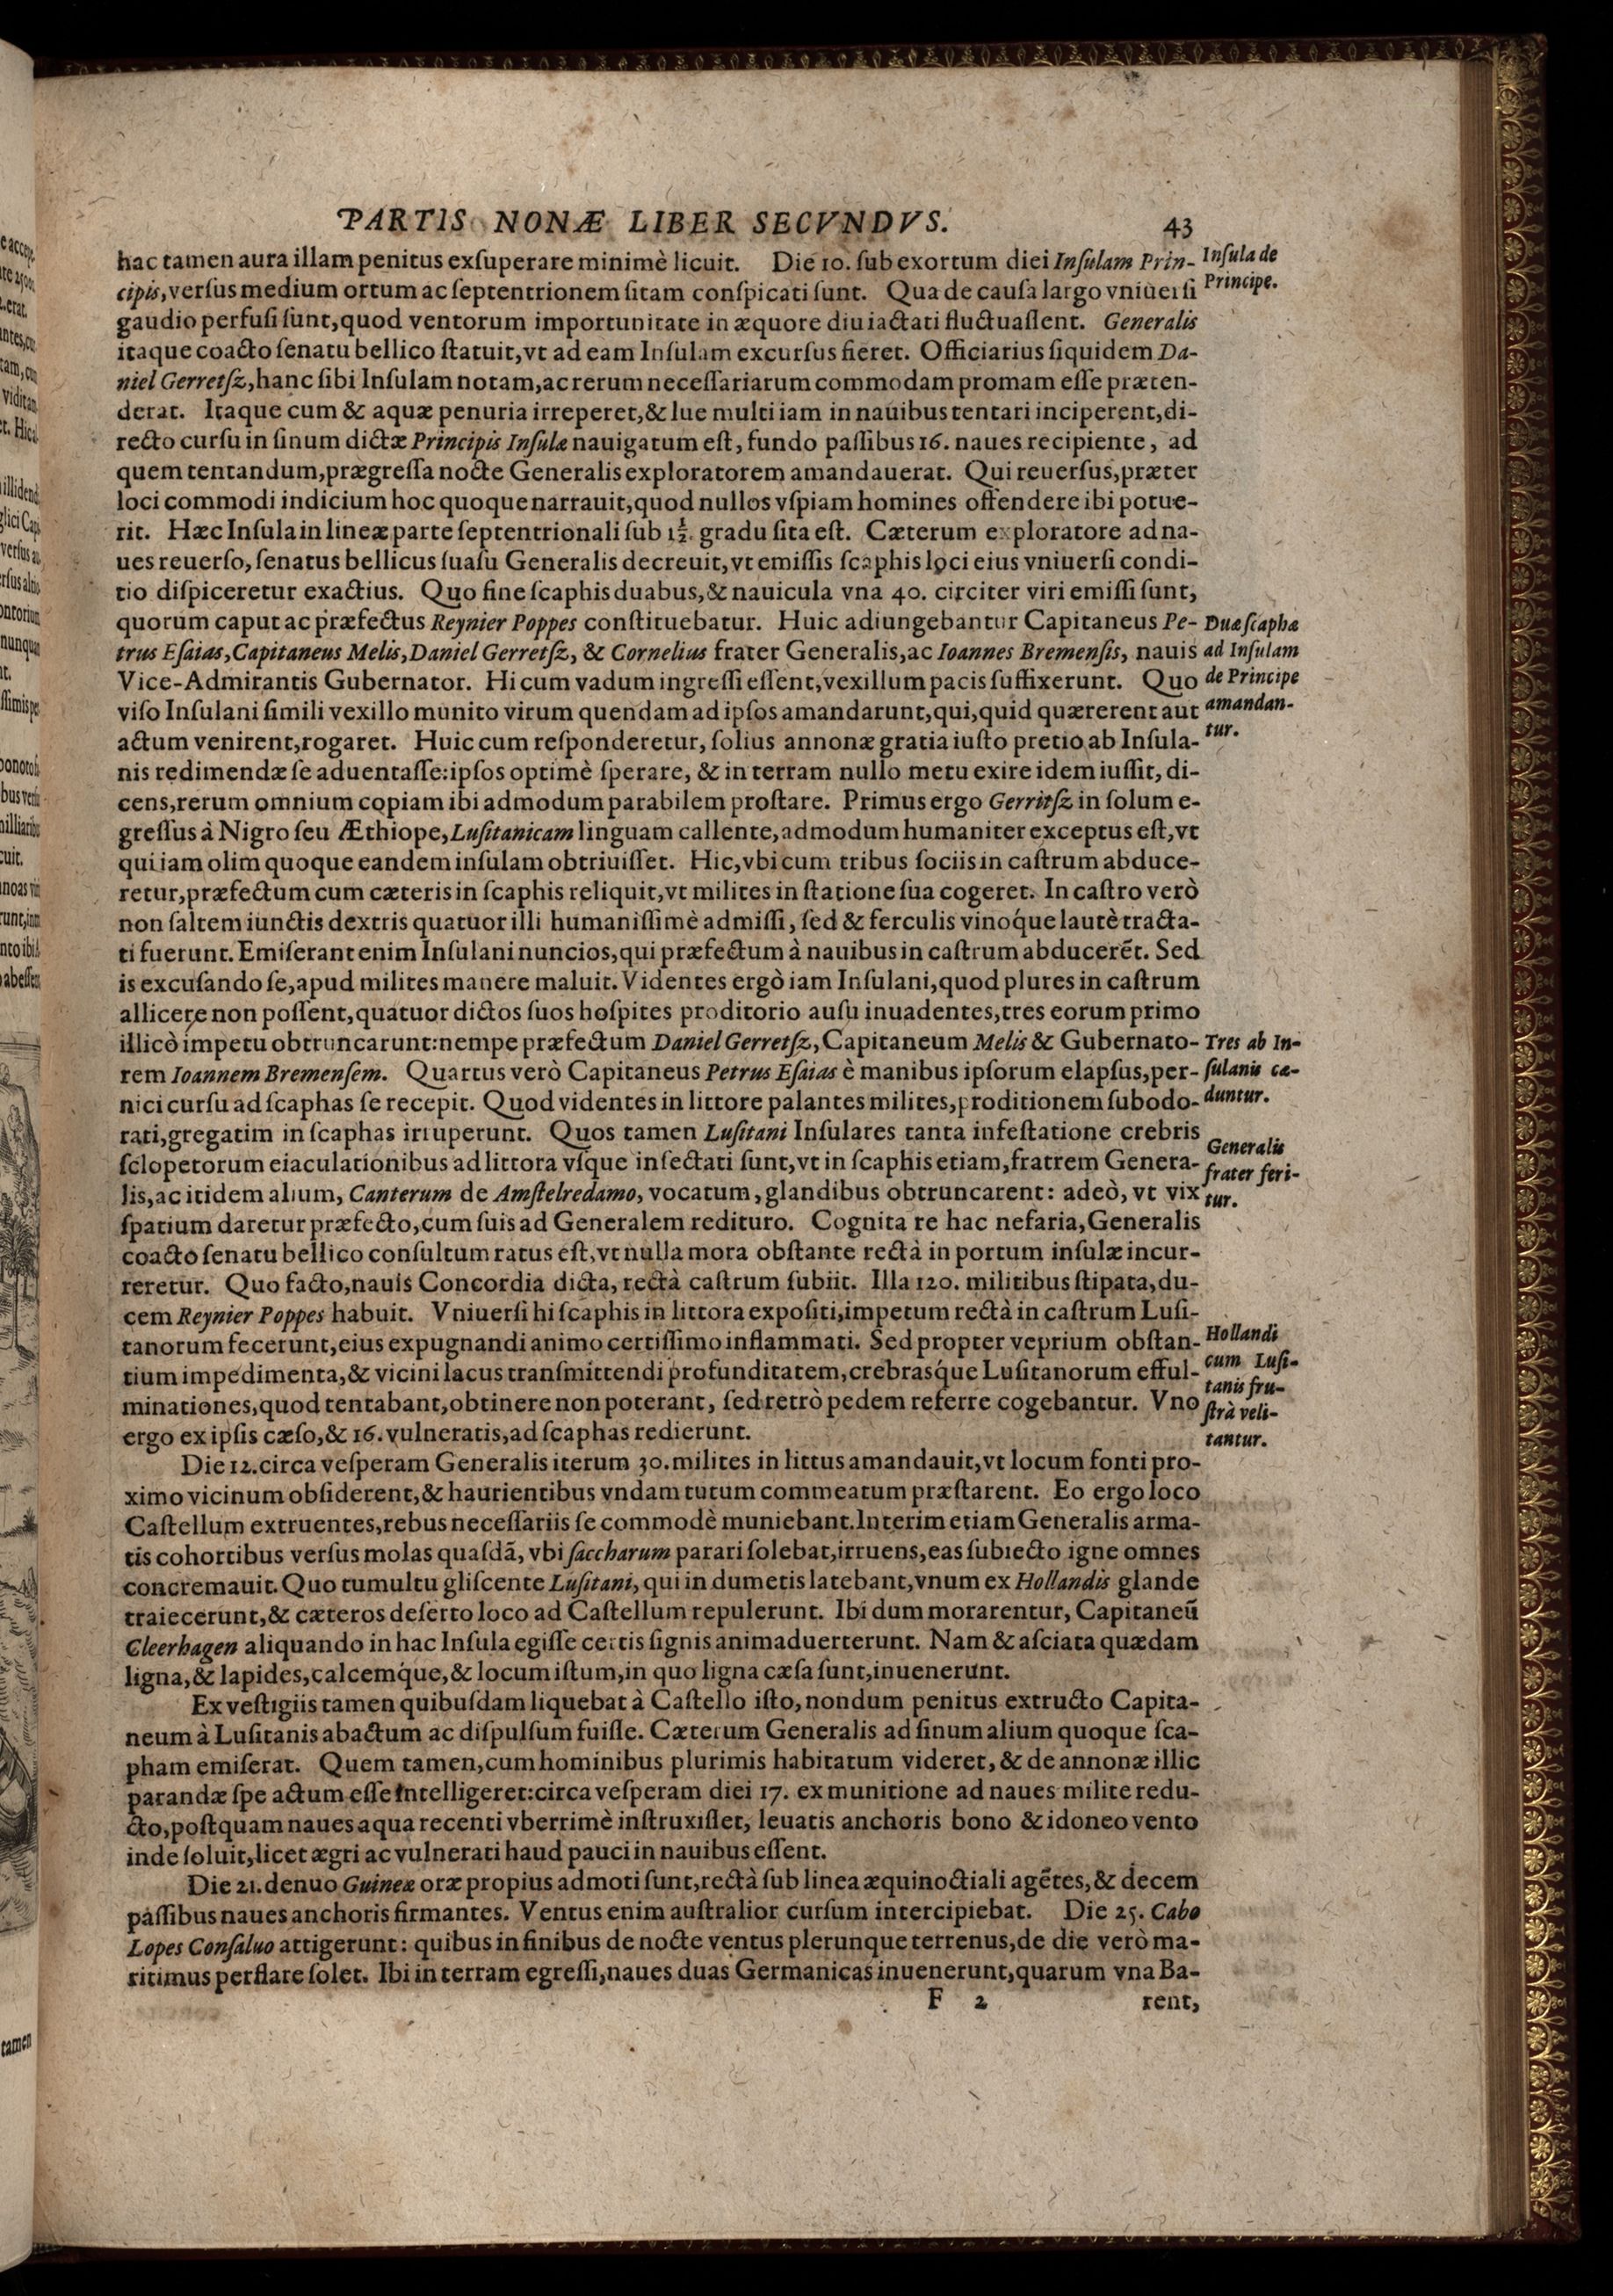 PARTIS NONÆ LIBER SECVNDVS. 43
hac tamen aura illam penitus exſuperare minimè licuit. Die 10. ſub exortum diei Inſulam Prin-
cipis, verſus medium ortum ac ſeptentrionem ſitam conſpicati ſunt. Qua de cauſa largo vniuerſi
gaudio perfuſi ſunt, quod ventorum importunitate in æquore diu iactati fluctuaſſent. Generalis
itaque coacto ſenatu bellico ſtatuit, vt ad eam Inſulam excurſus fieret. Officiarius ſiquidem Da-
niel Gerretſz, hanc ſibi Inſulam notam, ac rerum neceſſariarum commodam promam eſſe præten-
derat. Itaque cum & aquæ penuria irreperet, & lue multi iam in nauibus tentari inciperent, di-
recto curſu in ſinum dictæ Principis Inſulæ nauigatum eſt, fundo paſſibus 16. naues recipiente, ad
quem tentandum, prægreſſa nocte Generalis exploratorem amandauerat. Qui reuerſus, præter
loci commodi indicium hoc quoque narrauit, quod nullos vſpiam homines offendere ibi potue-
rit. Hæc Inſula in lineæ parte ſeptentrionali ſub 1½. gradu ſita eſt. Cæterum exploratore ad na-
ues reuerſo, ſenatus bellicus ſuaſu Generalis decreuit, vt emiſſis ſcaphis loci eius vniuerſi condi-
tio diſpiceretur exactius. Quo fine ſcaphis duabus, & nauicula vna 40. circiter viri emiſſi ſunt,
quorum caput ac præfectus Reynier Poppes conſtituebatur. Huic adiungebantur Capitaneus Pe-
trus Eſaias, Capitaneus Melis, Daniel Gerretſz, & Cornelius frater Generalis, ac Ioannes Bremenſis, nauis
Vice-Admirantis Gubernator. Hi cum vadum ingreſſi eſſent, vexillum pacis ſuffixerunt. Quo
viſo Inſulani ſimili vexillo munito virum quendam ad ipſos amandarunt, qui, quid quærerent aut
actum venirent, rogaret. Huic cum reſponderetur, ſolius annonæ gratia iuſto pretio ab Inſula-
nis redimendæ ſe aduentaſſe: ipſos optimè ſperare, & in terram nullo metu exire idem iuſſit, di-
cens, rerum omnium copiam ibi admodum parabilem proſtare. Primus ergo Gerritſz in ſolum e-
greſſus à Nigro ſeu Æthiope, Luſitanicam linguam callente, admodum humaniter exceptus eſt, vt
qui iam olim quoque eandem inſulam obtriuiſſet. Hic, vbi cum tribus ſociis in caſtrum abduce-
retur, præfectum cum cæteris in ſcaphis reliquit, vt milites in ſtatione ſua cogeret. In caſtro verò
non ſaltem iunctis dextris quatuor illi humaniſſimè admiſſi, ſed & ferculis vinoq́ue lautè tracta-
ti fuerunt. Emiſerant enim Inſulani nuncios, qui præfectum à nauibus in caſtrum abducerẽt. Sed
is excuſando ſe, apud milites manere maluit. Videntes ergò iam Inſulani, quod plures in caſtrum
allicere non poſſent, quatuor dictos ſuos hoſpites proditorio auſu inuadentes, tres eorum primo
illicò impetu obtruncarunt: nempe præfectum Daniel Gerretſz, Capitaneum Melis & Gubernato-
rem Ioannem Bremenſem. Quartus verò Capitaneus Petrus Eſaias è manibus ipſorum elapſus, per-
nici curſu ad ſcaphas ſe recepit. Quod videntes in littore palantes milites, proditionem ſubodo-
rati, gregatim in ſcaphas irruperunt. Quos tamen Luſitani Inſulares tanta infeſtatione crebris
ſclopetorum eiaculationibus ad littora vſque inſectati ſunt, vt in ſcaphis etiam, fratrem Genera-
lis, ac itidem alium, Canterum de Amſtelredamo, vocatum, glandibus obtruncarent: adeò, vt vix
ſpatium daretur præfecto, cum ſuis ad Generalem redituro. Cognita re hac nefaria, Generalis
coacto ſenatu bellico conſultum ratus eſt, vt nulla mora obſtante rectà in portum inſulæ incur-
reretur. Quo facto, nauis Concordia dicta, rectà caſtrum ſubiit. Illa 120. militibus ſtipata, du-
cem Reynier Poppes habuit. Vniuerſi hi ſcaphis in littora expoſiti, impetum rectà in caſtrum Luſi-
tanorum fecerunt, eius expugnandi animo certiſſimo inflammati. Sed propter veprium obſtan-
tium impedimenta, & vicini lacus tranſmittendi profunditatem, crebrasq́ue Luſitanorum efful-
minationes, quod tentabant, obtinere non poterant, ſed retrò pedem referre cogebantur. Vno
ergo ex ipſis cæſo, & 16. vulneratis, ad ſcaphas redierunt.
Die 12. circa veſperam Generalis iterum 30. milites in littus amandauit, vt locum fonti pro-
ximo vicinum obſiderent, & haurientibus vndam tutum commeatum præſtarent. Eo ergo loco
Caſtellum extruentes, rebus neceſſariis ſe commodè muniebant. Interim etiam Generalis arma-
tis cohortibus verſus molas quaſdã, vbi ſaccharum parari ſolebat, irruens, eas ſubiecto igne omnes
concremauit. Quo tumultu gliſcente Luſitani, qui in dumetis latebant, vnum ex Hollandis glande
traiecerunt, & cæteros deſerto loco ad Caſtellum repulerunt. Ibi dum morarentur, Capitaneũ
Cleerhagen aliquando in hac Inſula egiſſe certis ſignis animaduerterunt. Nam & aſciata quædam
ligna, & lapides, calcemq́ue, & locum iſtum, in quo ligna cæſa ſunt, inuenerunt.
Ex veſtigiis tamen quibuſdam liquebat à Caſtello iſto, nondum penitus extructo Capita-
neum à Luſitanis abactum ac diſpulſum fuiſſe. Cæterum Generalis ad ſinum alium quoque ſca-
pham emiſerat. Quem tamen, cum hominibus plurimis habitatum videret, & de annonæ illic
parandæ ſpe actum eſſe intelligeret: circa veſperam diei 17. ex munitione ad naues milite redu-
cto, poſtquam naues aqua recenti vberrimè inſtruxiſſet, leuatis anchoris bono & idoneo vento
inde ſoluit, licet ægri ac vulnerati haud pauci in nauibus eſſent.
Die 21. denuo Guineæ oræ propius admoti ſunt, rectà ſub linea æquinoctiali agẽtes, & decem
paſſibus naues anchoris firmantes. Ventus enim auſtralior curſum intercipiebat. Die 25. Cabo
Lopes Conſaluo attigerunt: quibus in finibus de nocte ventus plerunque terrenus, de die verò ma-
ritimus perflare ſolet. Ibi in terram egreſſi, naues duas Germanicas inuenerunt, quarum vna Ba-
F 2 rent,
Inſula de
Principe.
Duæ ſcaphæ
ad Inſulam
de Principe
amandan-
tur.
Tres ab In-
ſulanis cæ-
duntur.
Generalis
frater feri-
tur.
Hollandi
cum Luſi-
tanis fru-
ſtrà veli-
tantur.
tamen